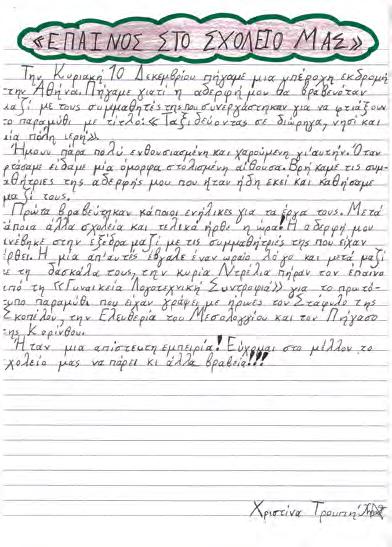 «ΕΠΑΙΝΟΣ ΣΤΟ ΣΧΟΛΕΙΟ ΜΑΣ»
Την Κυριακή 10 Δεκεμβρίου πήγαμε μια υπέροχη εκδρομή
την Αθήνα. Πήγαμε γιατί η αδερφή μου θα βραβευόταν
αζί με τους συμμαθητές της που συνεργάστηκαν για να φτιάξουν
το παραμύθι με τίτλο: «Ταξιδεύοντας σε διώρυγα, νησί και
μία πόλη ιερή».
Ήμουν πάρα πολύ ενθουσιασμένη και χαρούμενη γι' αυτήν. Όταν
φτάσαμε είδαμε μία όμορφα στολισμένη αίθουσα. Βρήκαμε τις συμ-
αθήτριες της αδερφής μου που ήταν ήδη εκεί και καθήσαμε
μαζί τους.
Πρώτα βραβεύτηκαν κάποιοι ενήλικες για τα έργα τους. Μετά
άποια άλλα σχολεία και τελικά ήρθε η ώρα! Η αδερφή μου
νέβηκε στην εξέδρα μαζί με τις συμμαθήτριές της που είχαν
ρθει. Η μία απ' αυτές έβγαλε έναν ωραίο λόγο και μετά μαζί
με τη δασκάλα τους, την κυρία Ντρέλια πήραν τον έπαινο
από τη «Γυναικεία Λογοτεχνική Συντροφιά» για το πρωτό-
υπο παραμύθι που είχαν γράψει με ήρωες τον Στάφυλο της
Σκοπέλου, την Ελευθερία του Μεσολογγίου και τον Πήγασο
της Κορίνθου.
Ήταν μια απίστευτη εμπειρία! Εύχομαι στο μέλλον το
χολείο μας να πάρει κι άλλα βραβεία!!!
Χριστίνα